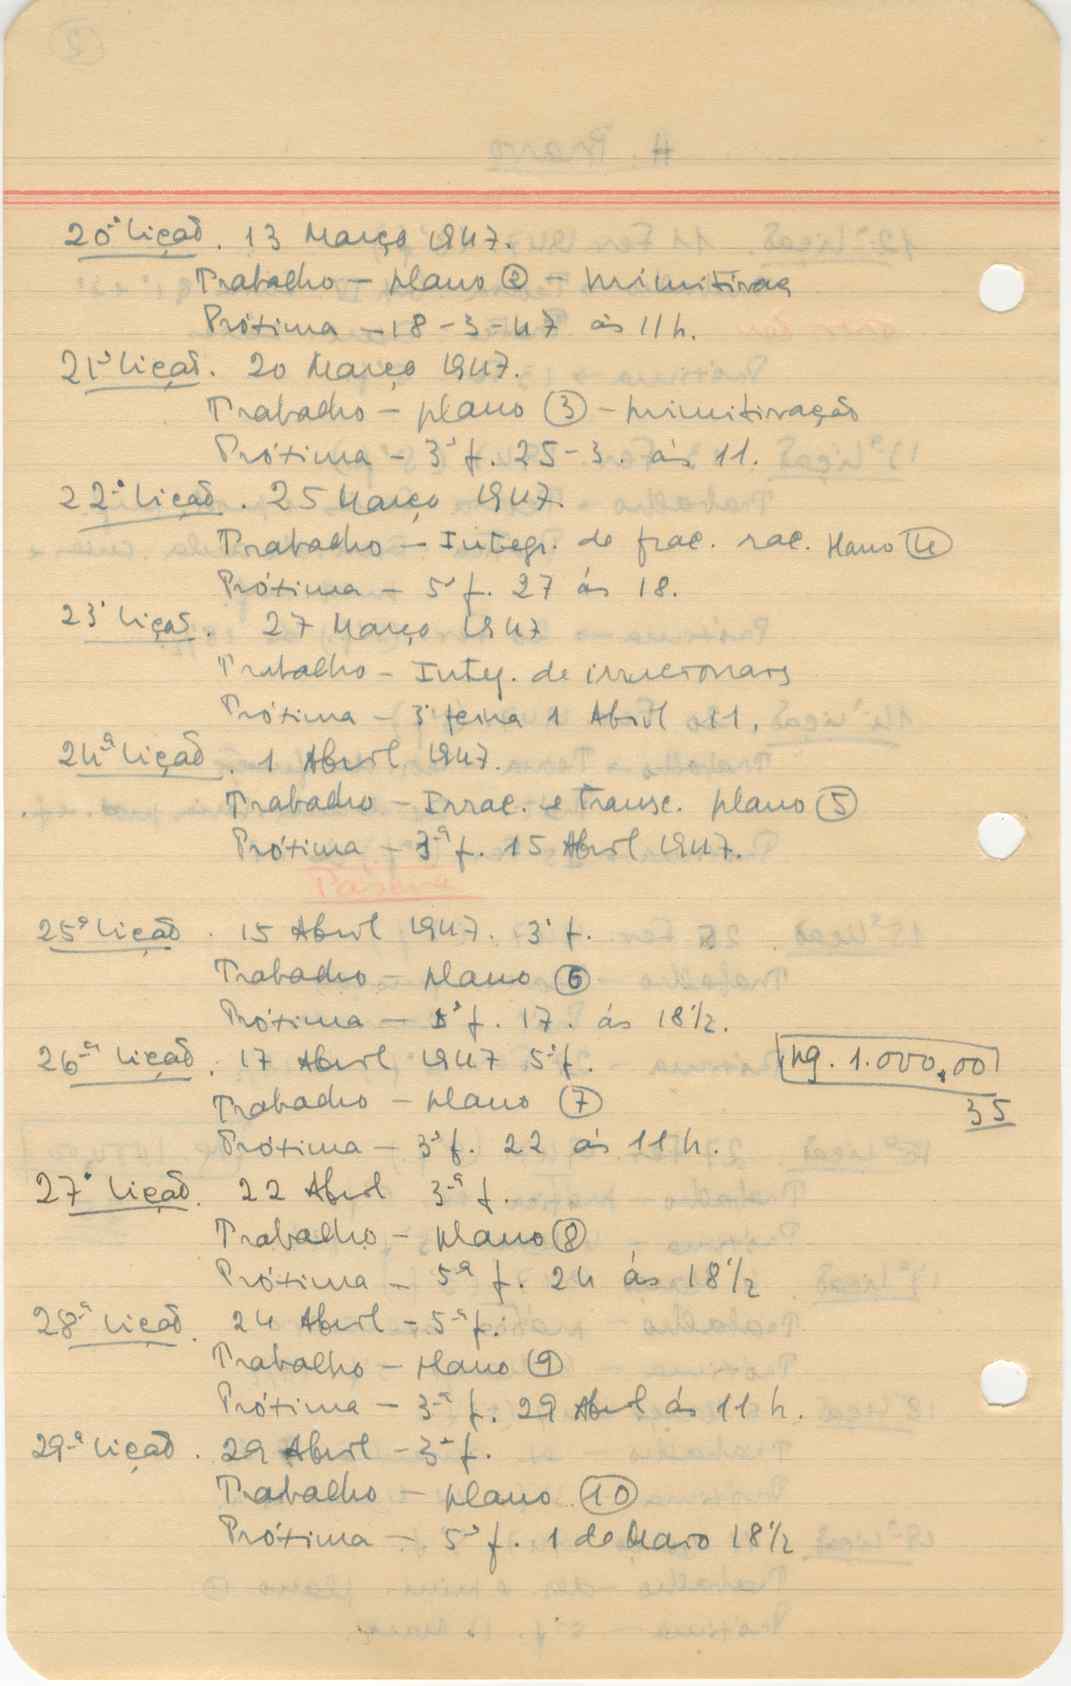 20ª Lição. 13 Março 1947.
Trabalho – plano 2 – primitivas
Próxima – 18-3-47 às 11 h.
21ª Lição. 20 Março 1947.
Trabalho – plano 3 – primitivação
Próxima – 3ª f. 25-3. às 11.
22ª Lição. 25 Março 1947.
Trabalho – Integr. de frac. rac. plano 4
Próxima – 5ª f. 27 às 18.
23ª Lição. 27 Março 1947
Trabalho – Integ. de irracionais
Próxima – 3ª feira 1 Abril 11.
24ª Lição. 1 Abril 1947.
Trabalho – Irrac. e transc. plano 5
Próxima – 3ª f. 15 Abril 1947.
Páscoa
25ª Lição. 15 Abril 1947. 3ª f.
Trabalho – plano 6
Próxima – 5ª f. 17. às 18 1/2.
26ª Lição. 17 Abril 1947 5ª f.
pg. 1.000,00
Trabalho – plano 7
35
Próxima – 3ª f. 22 às 11 h.
27ª Lição. 22 Abril 3ª f.
Trabalho – plano 8
Próxima – 5ª f. 24 às 18 1/2
28ª Lição. 24 Abril – 5ª f.
Trabalho – plano 9
Próxima – 3ª f. 29 Abril às 11 h.
29ª Lição. 29 Abril – 3ª f.
Trabalho – plano 10
Próxima – 5ª f. 1 de Maio 18 1/2